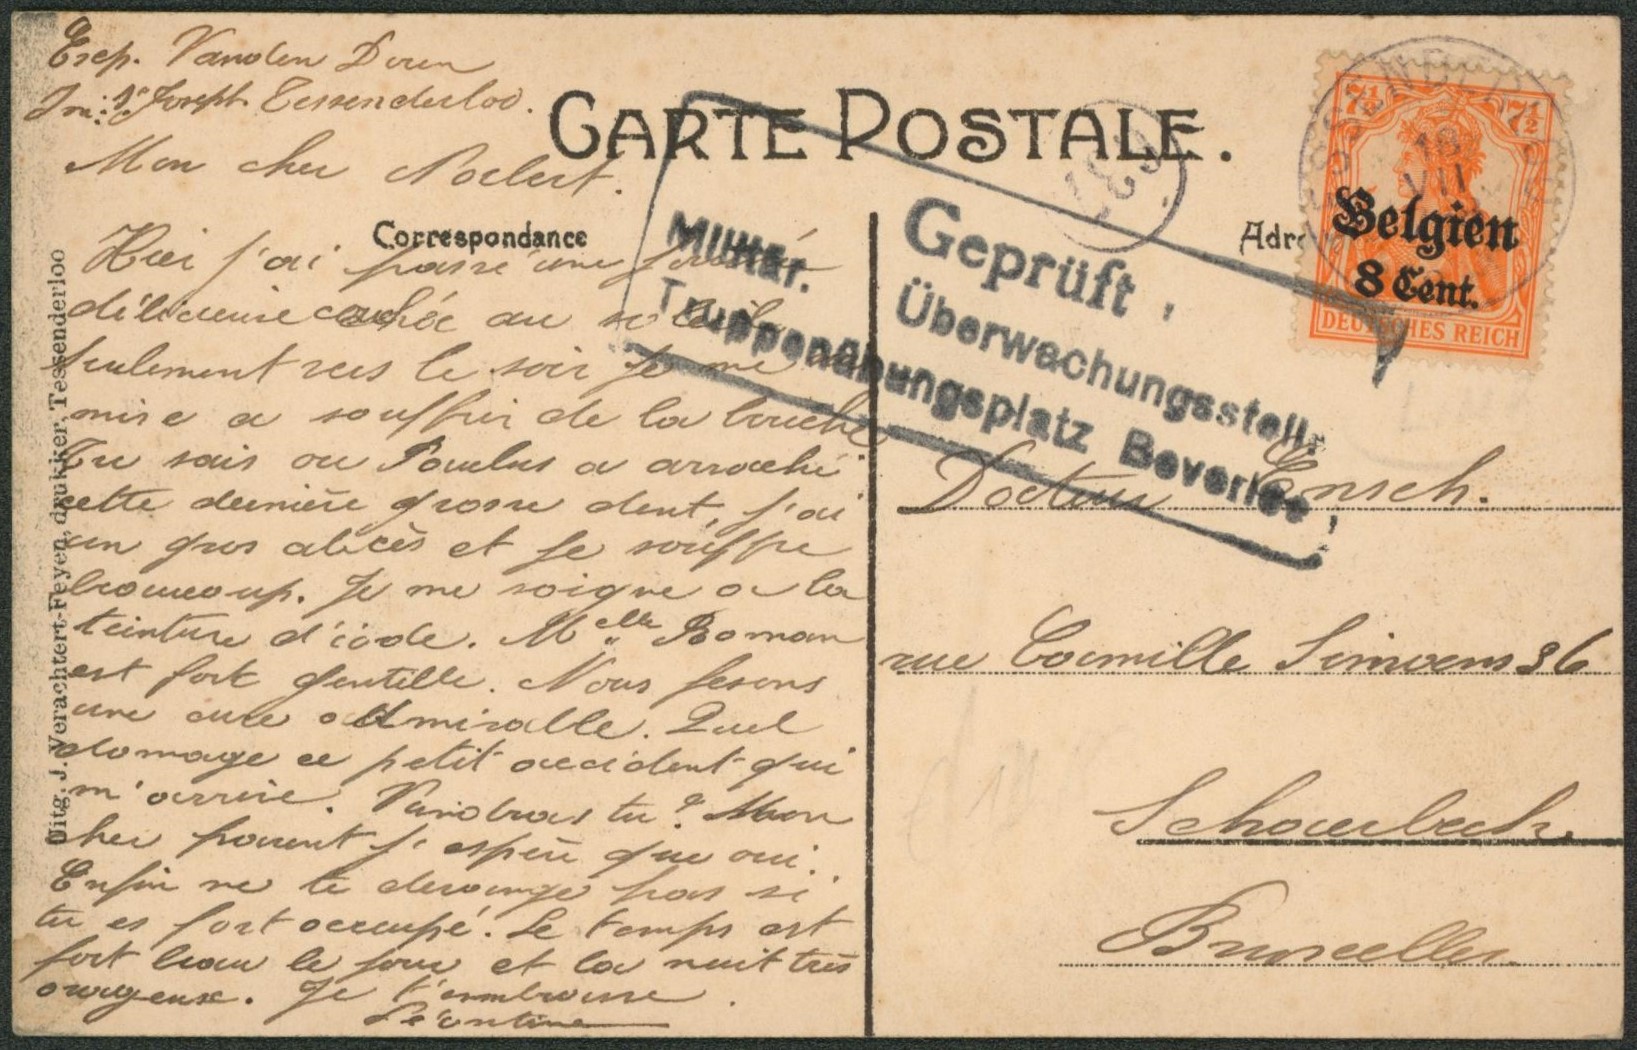 Exp. Vanden Doren
Ins: St Joseph Tessenderloo.
CARTE POSTALE.
Mon cher Norbert.
Correspondance
Adre
Hier j'ai passé une journée
délicieuse couchée au soleil
seulement vers le soir je me
mise a souffrir de la bouche
Tu sais ou Paulus a arraché
cette dernière grosse dent, j'ai
un gros abcès et je souffre
beaucoup. Je me soigne a la
teinture d'iode. Melle Roman
est fort gentille. Nous fesons
une cure admirable. Quel
domage ce petit accident qui
m'arrive. Viendras tu? Mon
cher parent j'espère que oui.
Enfin ne te derange pas si
tu es fort occupé. Le temps est
fort beau le jour et la nuit très
orageux. Je t'embrasse.
Léontine
Uitg. J. Verachtert-Feyen, drukker, Tessenderloo
Geprüft,
Militär.
Überwachungsstelle
Truppenübungsplatz Beverloo,
7½ 7½
Belgien
8 Cent.
DEUTSCHES REICH
18
VII
Docteur Ensch.
rue Camille Simoens 36
Schaerbeek.
Bruxelles.